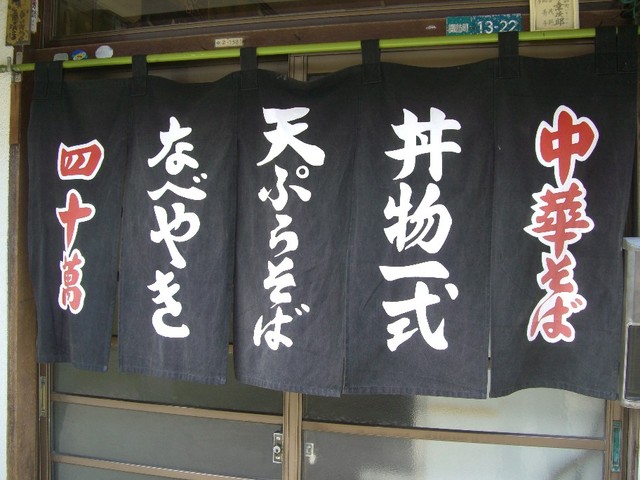 中華そば
丼物一式
天ぷらそば
なべやき
四十萬
13-22